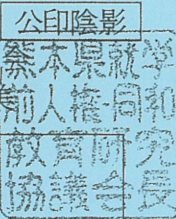 公印陰影
熊本県就学
前人権・同和
教育研究
協議会長